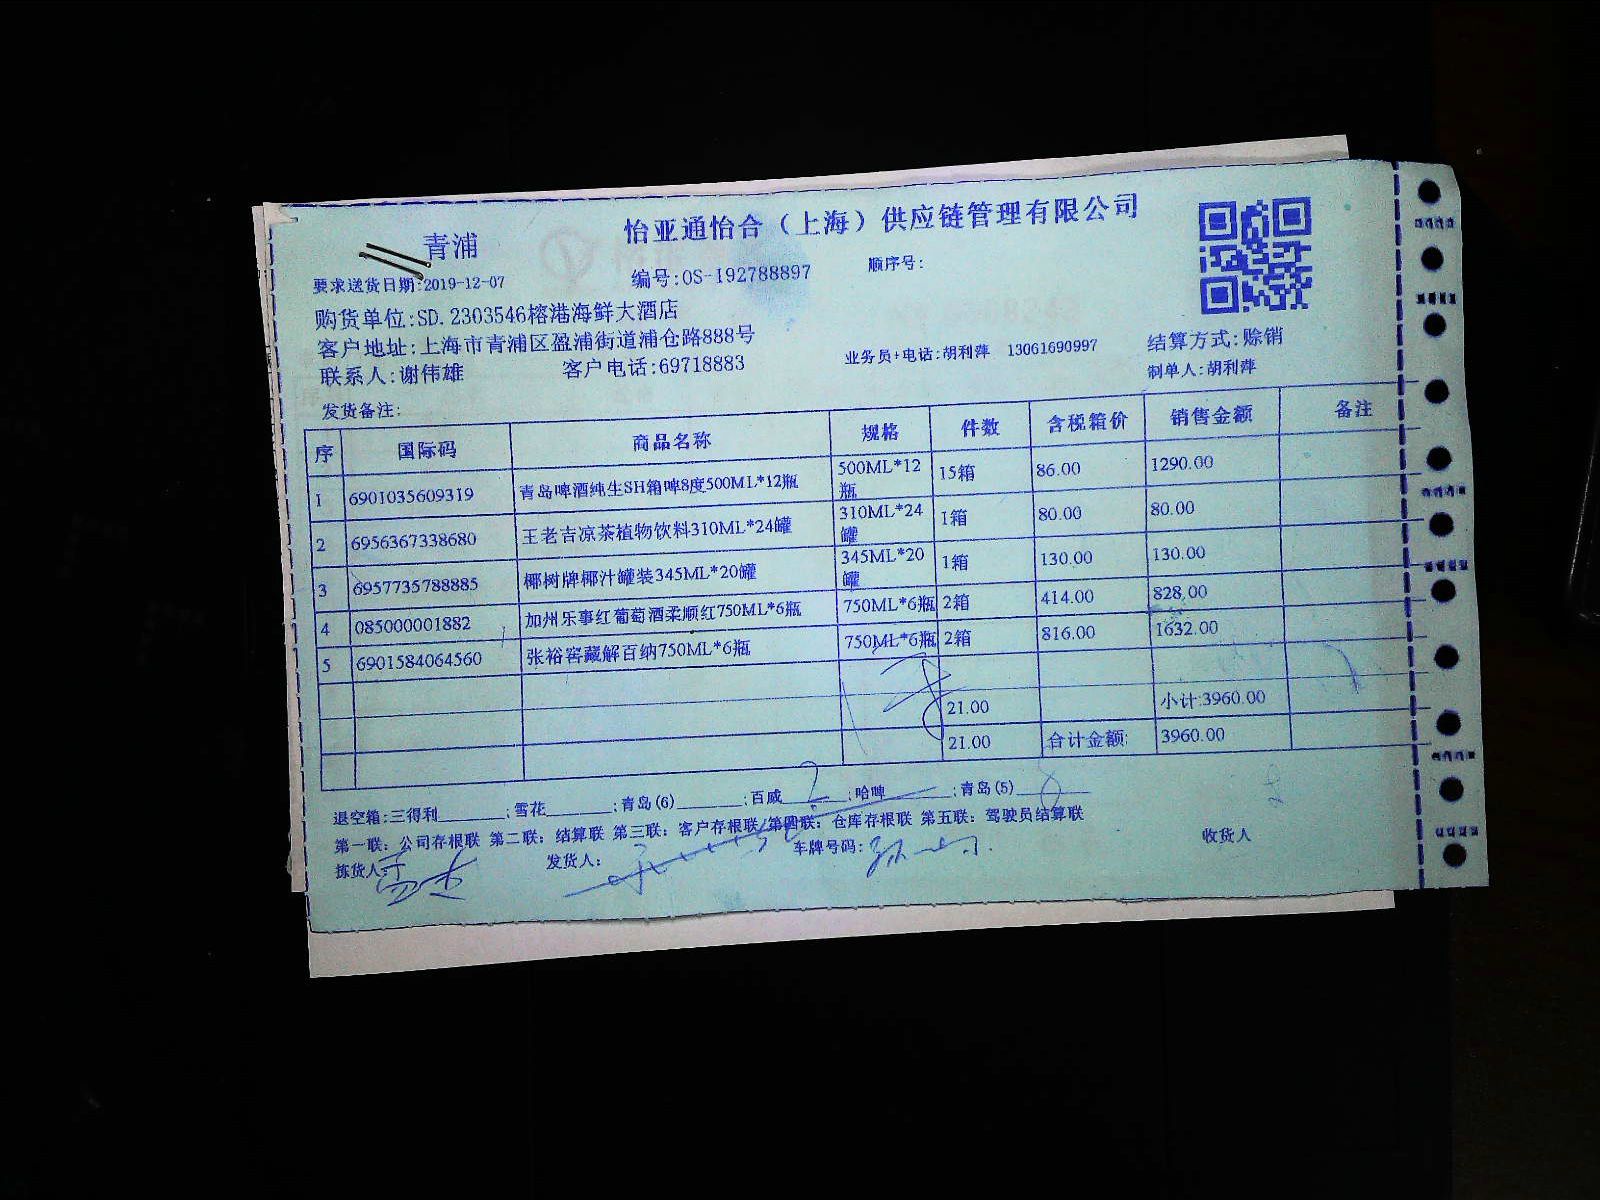 怡亚通怡合（上海）供应链管理有限公司
青浦
要求送货日期:2019-12-07 编号:OS-192788897 顺序号:
购货单位:SD.2303546榕港海鲜大酒店
客户地址:上海市青浦区盈浦街道浦仓路888号
联系人:谢伟雄 客户电话:69718883 业务员+电话:胡利萍 13061690997 结算方式:赊销
制单人:胡利萍
发货备注:
序 国际码 商品名称 规格 件数 含税箱价 销售金额 备注
1 6901035609319 青岛啤酒纯生SH箱啤8度500ML*12瓶 500ML*12瓶 15箱 86.00 1290.00
2 6956367338680 王老吉凉茶植物饮料310ML*24罐 310ML*24罐 1箱 80.00 80.00
3 6957735788885 椰树牌椰汁罐装345ML*20罐 345ML*20罐 1箱 130.00 130.00
4 085000001882 加州乐事红葡萄酒柔顺红750ML*6瓶 750ML*6瓶 2箱 414.00 828.00
5 6901584064560 张裕窖藏解百纳750ML*6瓶 750ML*6瓶 2箱 816.00 1632.00
21.00 小计:3960.00
21.00 合计金额: 3960.00
退空箱:三得利______;雪花______;青岛(6)______;百威__2__;哈啤______;青岛(5)______
第一联：公司存根联 第二联：结算联 第三联：客户存根联 第四联：仓库存根联 第五联：驾驶员结算联
拣货人: 发货人: 车牌号码: 收货人